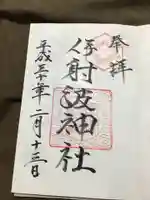 奉拝
伊射波神社
平成三十年二月十三日